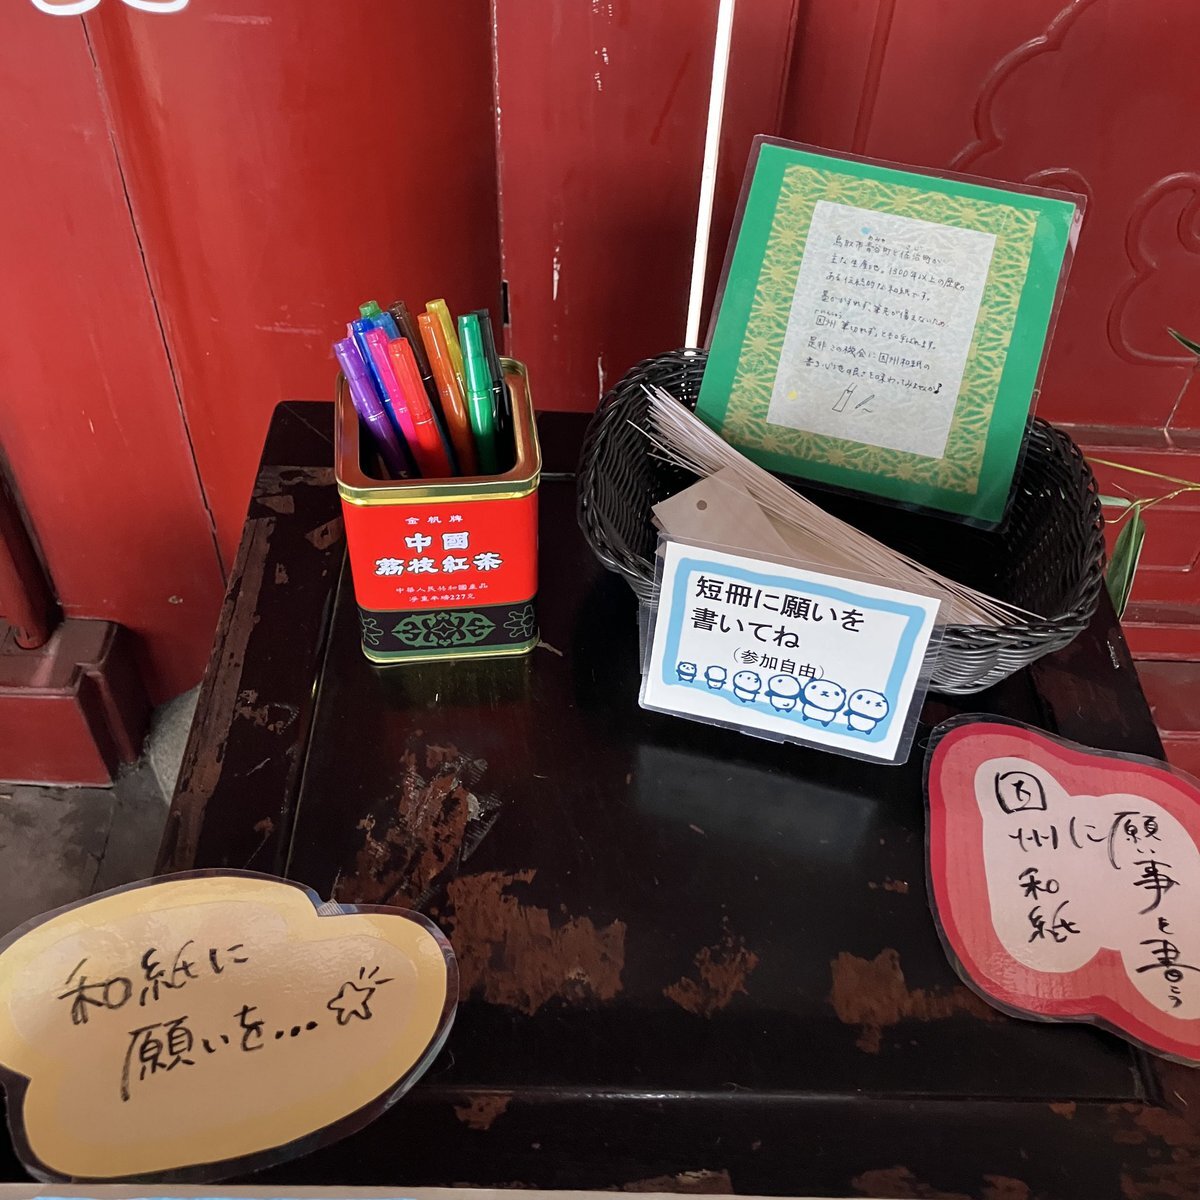 鳥取市青谷町と佐治町が
主な生産地。1300年以上の歴史の
ある伝統的な和紙です。
墨がかすれず、筆先が傷まないため
因州筆切れずとも呼ばれます。
是非この機会に因州和紙の
書き心地の良さを味わってみませんか
金帆牌
中國
荔枝紅茶
中華人民共和國產品
淨重本磅227克
短冊に願いを
書いてね
(参加自由)
因州和紙に
願い事を書こう
和紙に
願いを...☆